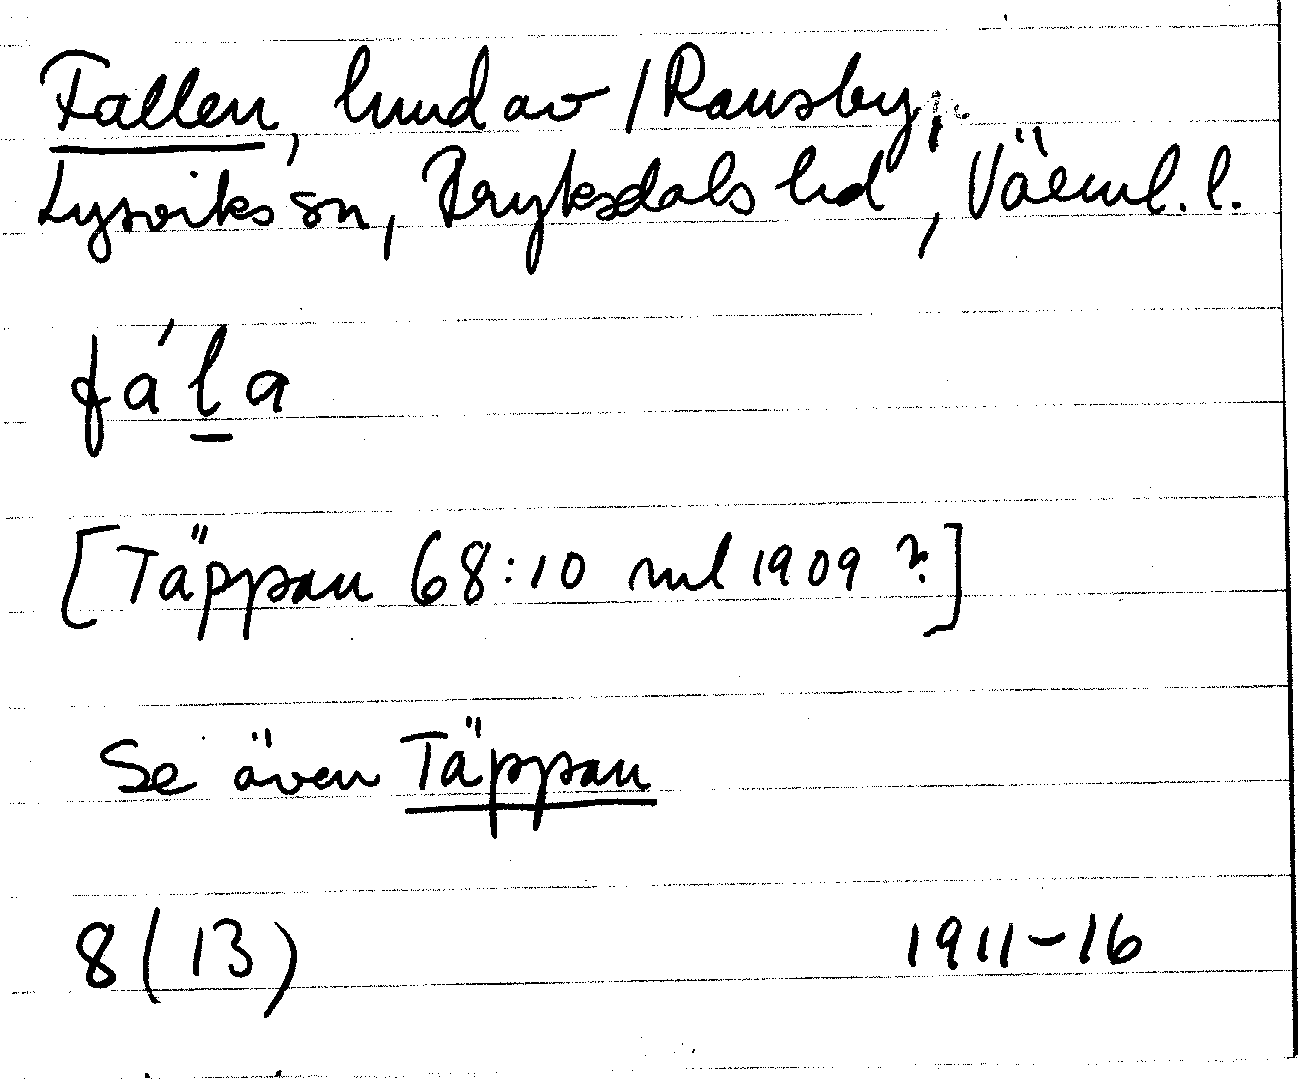 Fallen, hmd av /Ransby,
Lysviks sn, Fryksdals hd, Värml. l.
fa´la
[Täppan 68:10 mtl 1909 ?]
Se även Täppan
8(13) 1911-16